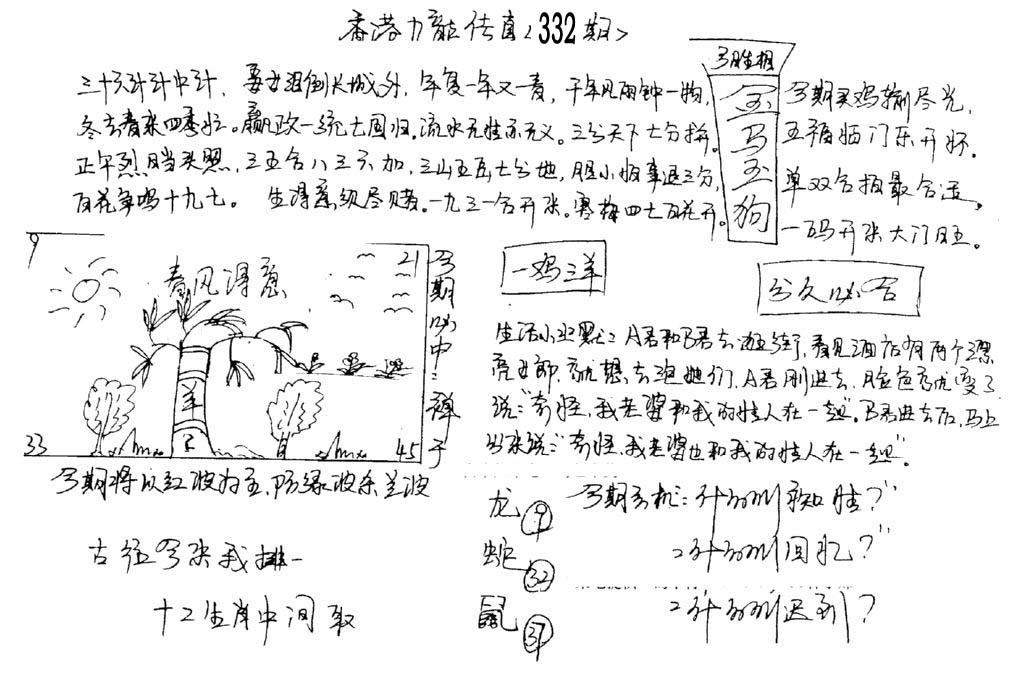 香港力龍传真<332期>
三十六计计中计，孟女泪倒长城外，年复一年又一春，千年见雨钟一物，
冬去春来四季忙。赢政一统七国归。流水无性亦无义。三分天下七分拼。
正午烈日当头照，三五合八三六加，三山五岳七分地，胆小怕事退三分，
百花争鸣十九七。 生得意须尽欢。一九三一合开来。寒梅四七百花开。
今期生相
金
马
玉
狗
今期买鸡输尽光，
五福临门乐开怀。
单双合拍最合适，
一码开来大门旺。
9
21
春风得意
羊
33
45
今期必中：禅于
一鸡三羊
分久必合
生活小幽默：A君和B君去逛街，看见酒店有两个漂
亮女郎，就想去泡她们，A君刚进去，脸色就变了
说："奇怪，我老婆和我的情人在一起"。B君进去后，马上
出来说："奇怪，我老婆也和我的情人在一起"。
今期将以红波为主，防绿波杀兰波
古径今来我排一
十二生肖中间取
龙 9
蛇 32
鼠 37
今期玄机：
回忆？"
迟到？